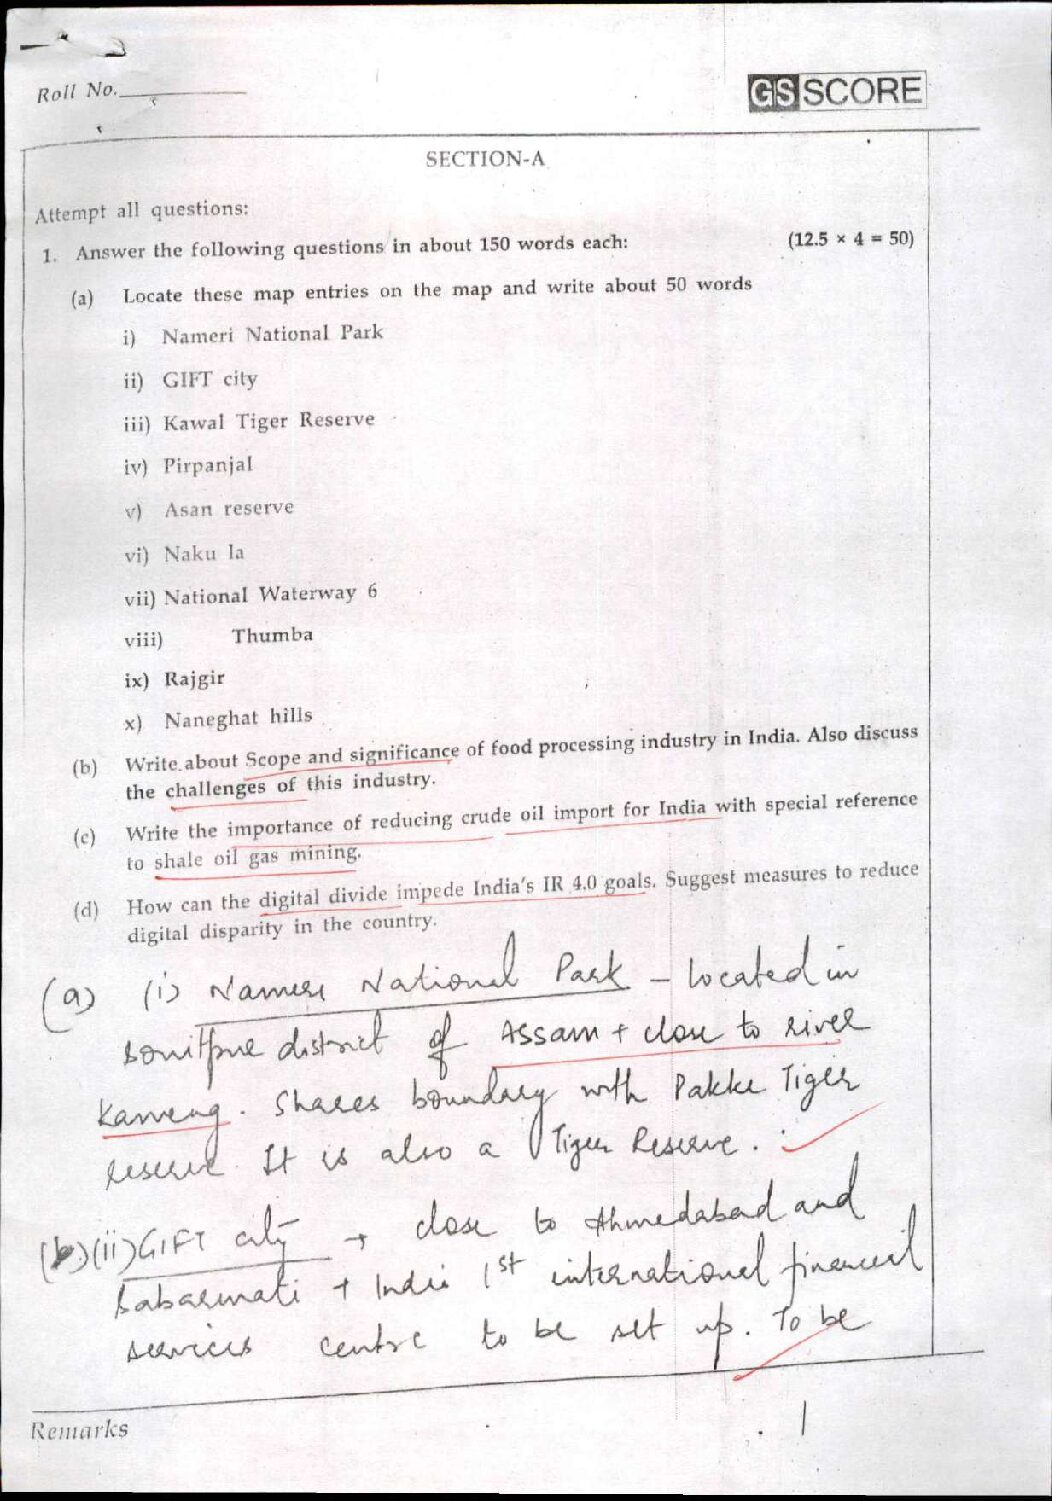 Roll No.
GSSCORE
SECTION-A
Attempt all questions:
1. Answer the following questions in about 150 words each: (12.5 × 4 = 50)
(a) Locate these map entries on the map and write about 50 words
i) Nameri National Park
ii) GIFT city
iii) Kawal Tiger Reserve
iv) Pirpanjal
v) Asan reserve
vi) Naku la
vii) National Waterway 6
viii) Thumba
ix) Rajgir
x) Naneghat hills
(b) Write about Scope and significance of food processing industry in India. Also discuss
the challenges of this industry.
(c) Write the importance of reducing crude oil import for India with special reference
to shale oil gas mining.
(d) How can the digital divide impede India's IR 4.0 goals. Suggest measures to reduce
digital disparity in the country.
(a) (i) Nameri National Park – located in
Sonitpur district of Assam + close to river
Kameng. Shares boundary with Pakke Tiger
reserve. It is also a Tiger Reserve.
(ii) GIFT city → close to Ahmedabad and
Sabarmati + India 1st international financial
services centre to be set up. To be
Remarks
1